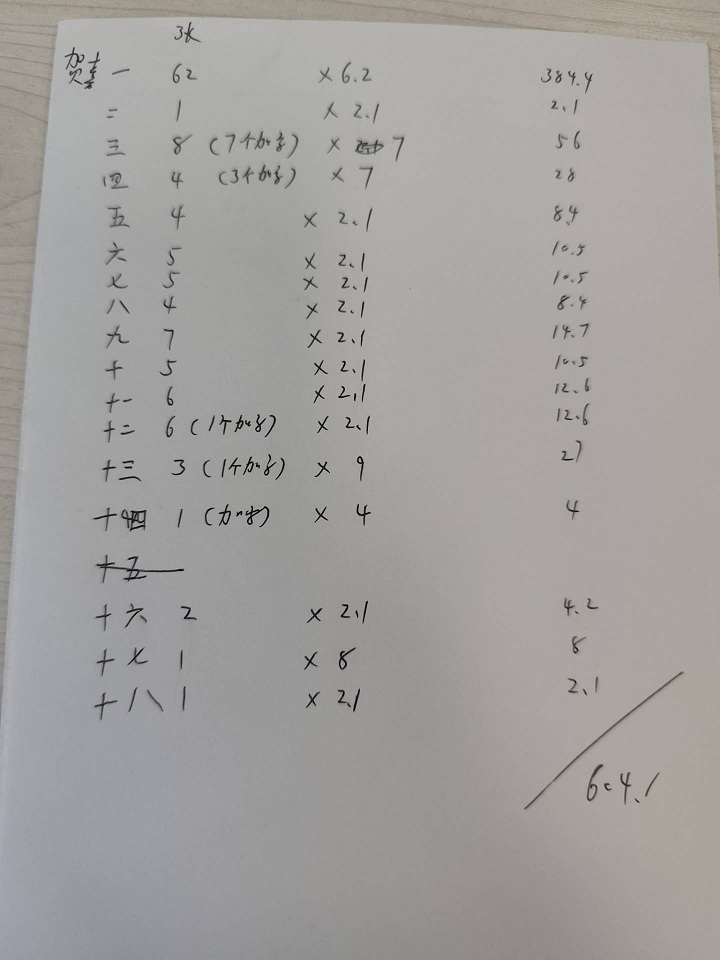 张
一 62 × 6.2 384.4
二 1 × 2.1 2.1
三 8 (7个加急) × 7 56
四 4 (3个加急) × 7 28
五 4 × 2.1 8.4
六 5 × 2.1 10.5
七 5 × 2.1 10.5
八 4 × 2.1 8.4
九 7 × 2.1 14.7
十 5 × 2.1 10.5
十一 6 × 2.1 12.6
十二 6 (1个加急) × 2.1 12.6
十三 3 (1个加急) × 9 27
十四 1 (加急) × 4 4
十五
十六 2 × 2.1 4.2
十七 1 × 8 8
十八 1 × 2.1 2.1
604.1